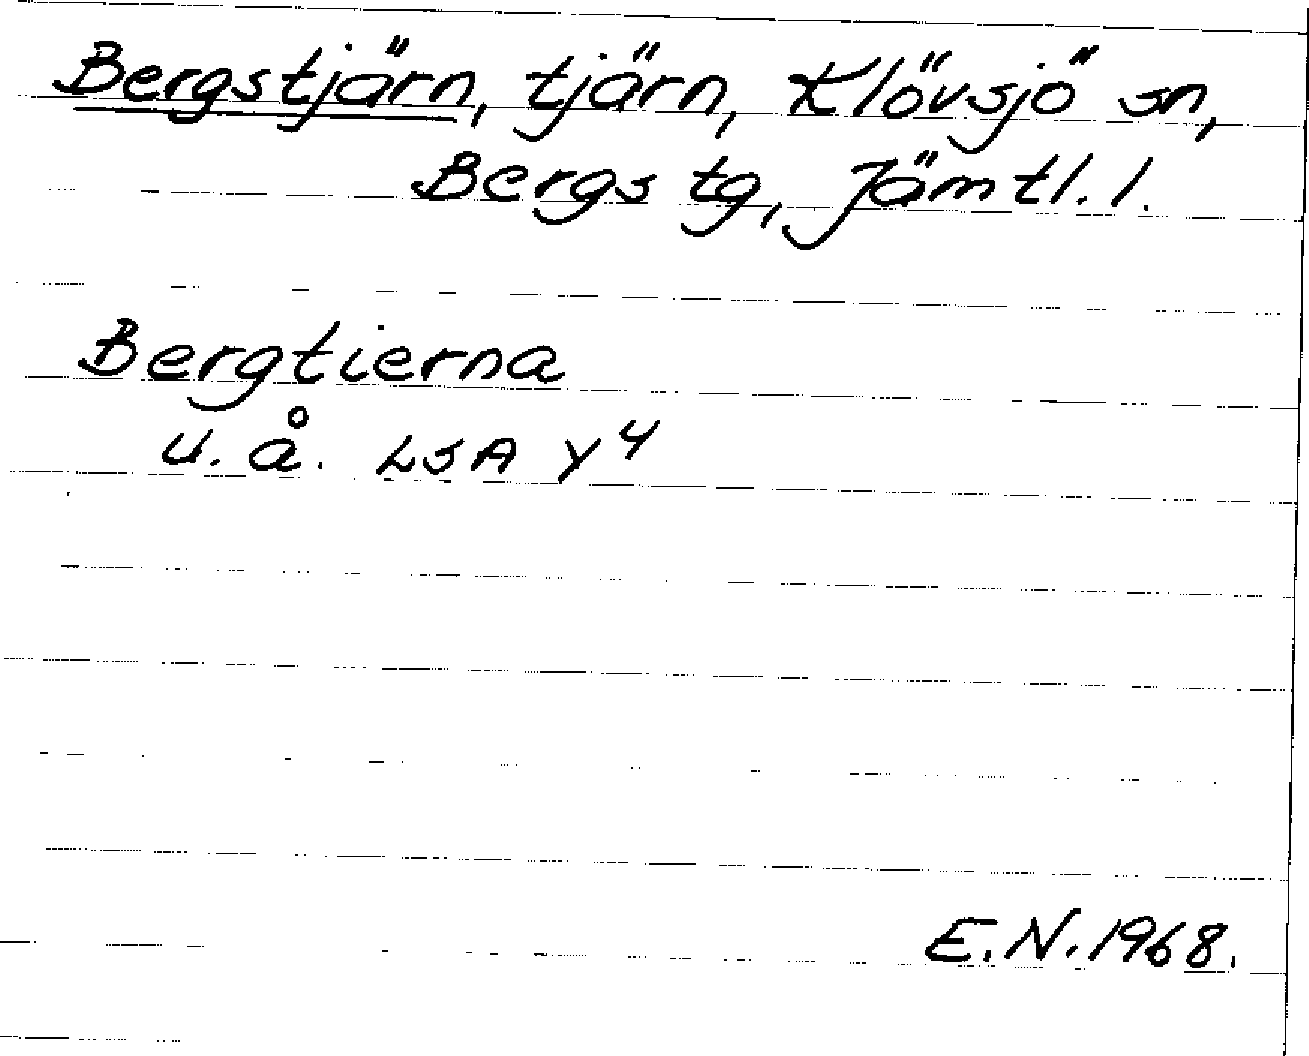 Bergstjärn, tjärn, Klövsjö sn,
Bergs tg, Jämtl. l.
Bergtierna
u. å. LSA Y4
E.N. 1968.